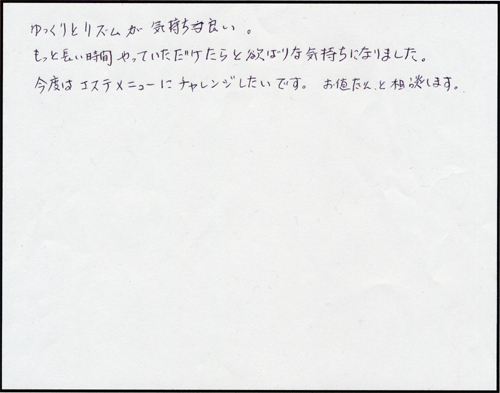 ゆっくりとリズムが気持ち良い。
もっと長い時間やっていただけたらと欲ばりな気持ちになりました。
今度はエステメニューにチャレンジしたいです。 お値だんと相談します。